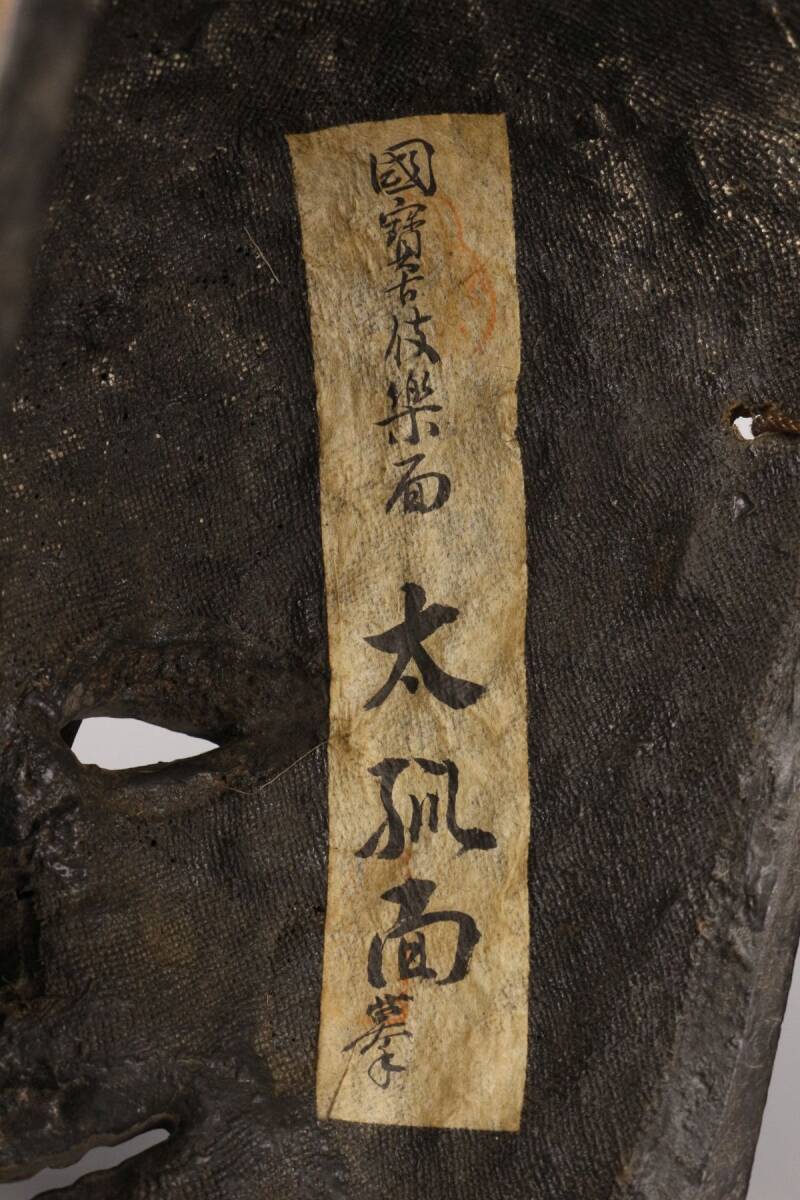 國寶古伎樂面 太孤面 摹